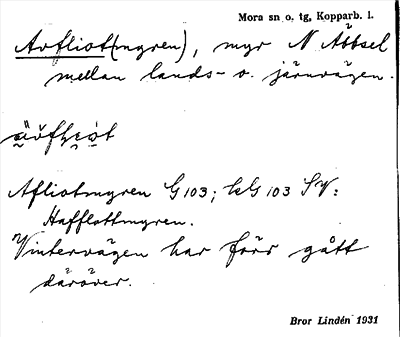 Mora sn o. tg, Kopparb. l.
Avfliot(myren), myr N Åbbsel
mellan lands- o. järnvägen.
Afliotmyren G 103; kG 103 SV:
Hafflottmyren.
Vintervägen har förr gått
däröver.
Bror Lindén 1931